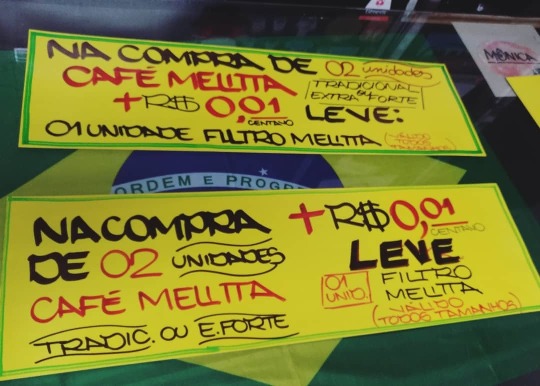 NA COMPRA DE 02 unidades
CAFÉ MELITTA TRADICIONAL ou
+ R$ 0,01 EXTRA FORTE
CENTAVO LEVE:
01 UNIDADE FILTRO MELITTA (VÁLIDO
TODOS
TAMANHOS)
MÔNICA
ORDEM E PROGRE
NA COMPRA
DE 02 UNIDADES
CAFÉ MELITTA
TRADIC. OU E. FORTE
+ R$ 0,01
CENTAVO
LEVE
01 UNID. FILTRO
MELITTA
(VÁLIDO
TODOS TAMANHOS)